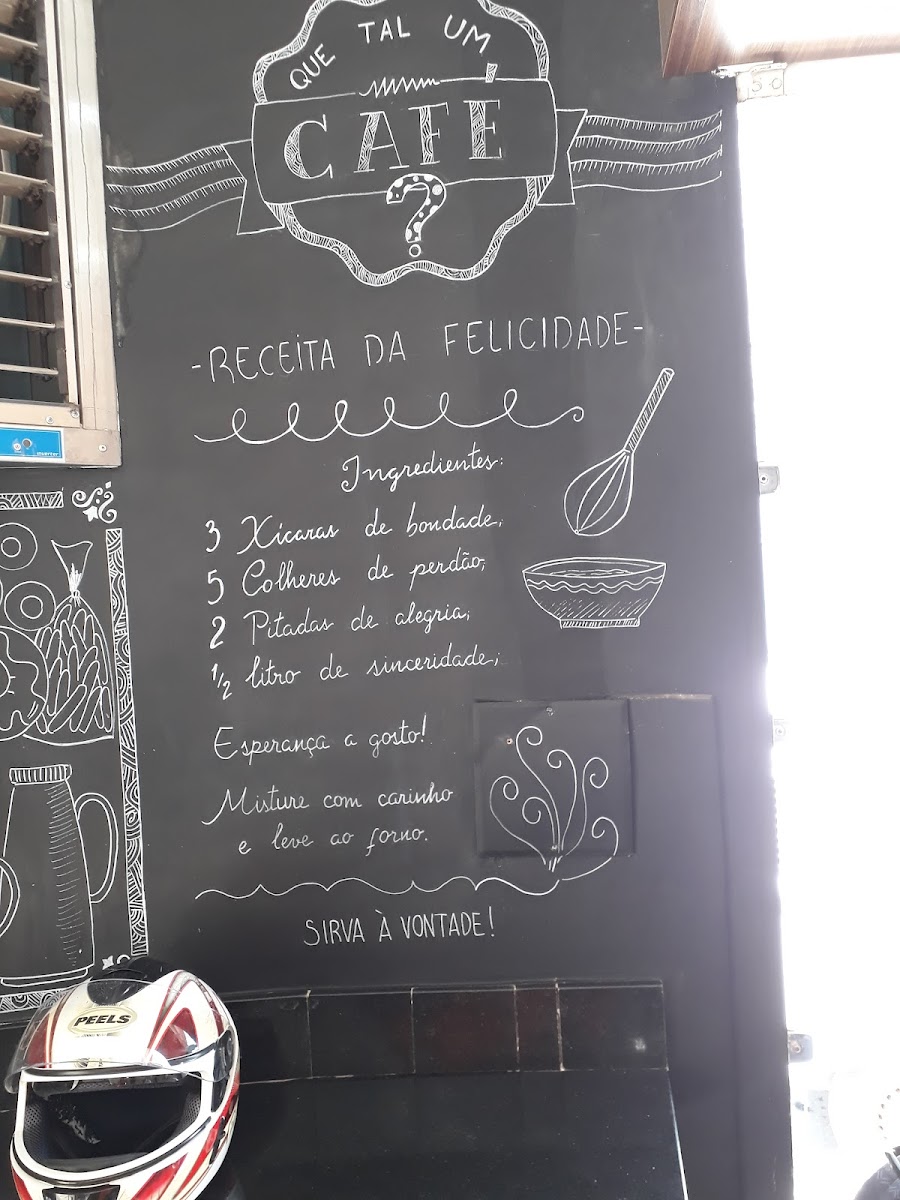 QUE TAL UM
CAFÉ
?
-RECEITA DA FELICIDADE-
Ingredientes:
3 Xícaras de bondade;
5 Colheres de perdão;
2 Pitadas de alegria;
1/2 litro de sinceridade;
Esperança a gosto!
Misture com carinho
e leve ao forno.
SIRVA À VONTADE!
inverter
PEELS